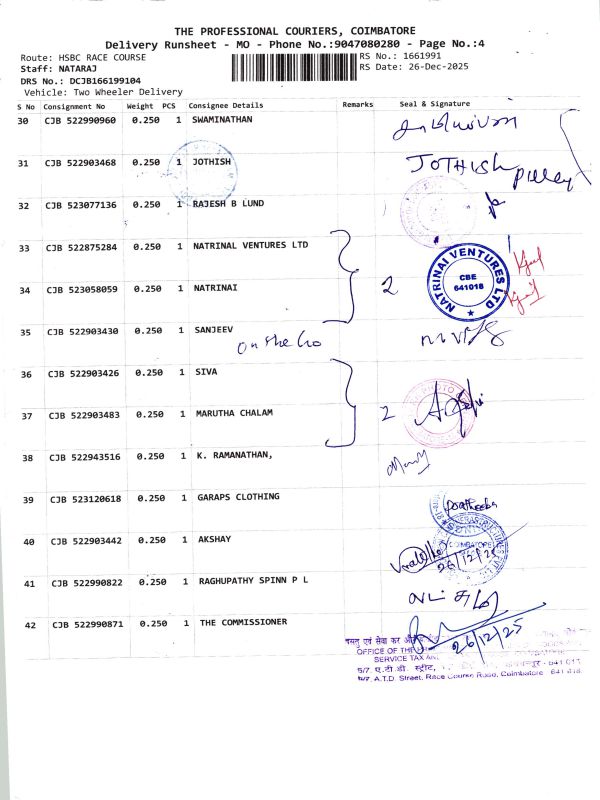 THE PROFESSIONAL COURIERS, COIMBATORE
Delivery Runsheet - MO - Phone No.:9047080280 - Page No.:4
Route: HSBC RACE COURSE
RS No.: 1661991
Staff: NATARAJ
RS Date: 26-Dec-2025
DRS No.: DCJB166199104
Vehicle: Two Wheeler Delivery
S No Consignment No Weight PCS Consignee Details Remarks Seal & Signature
30 CJB 522990960 0.250 1 SWAMINATHAN
31 CJB 522903468 0.250 1 JOTHISH JOTHISH
32 CJB 523077136 0.250 1 RAJESH B LUND
33 CJB 522875284 0.250 1 NATRINAL VENTURES LTD
NATRINAI VENTURES LTD
CBE
641018
34 CJB 523058059 0.250 1 NATRINAI 2
35 CJB 522903430 0.250 1 SANJEEV
On the Go
36 CJB 522903426 0.250 1 SIVA
37 CJB 522903483 0.250 1 MARUTHA CHALAM 2
38 CJB 522943516 0.250 1 K. RAMANATHAN,
39 CJB 523120618 0.250 1 GARAPS CLOTHING
40 CJB 522903442 0.250 1 AKSHAY
COIMBATORE
26/12/25
41 CJB 522990822 0.250 1 RAGHUPATHY SPINN P L
42 CJB 522990871 0.250 1 THE COMMISSIONER
26/12/25
OFFICE OF THE
SERVICE TAX
5/7, ए.टी.डी. स्ट्रीट,
5/7, A.T.D. Street, Race Course Road, Coimbatore - 641 018